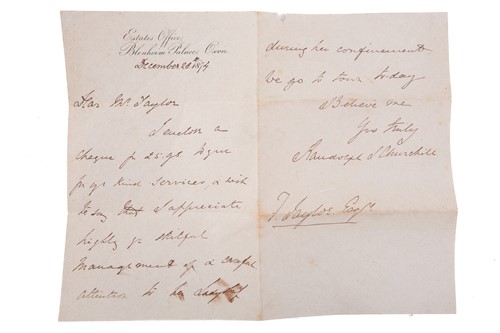 Estates Office,
Blenheim Palace, Oxon
December 28th 1874
Dear Mr. Taylor
I enclose a
cheque for 25 gs. to you
for yr kind services, & wish
to say that I appreciate
highly yr skilful
management of & careful
attention to her Ladyship
during her confinement
We go to town today
Believe me
Yrs truly
Randolph S Churchill
T. Taylor. Esqr.